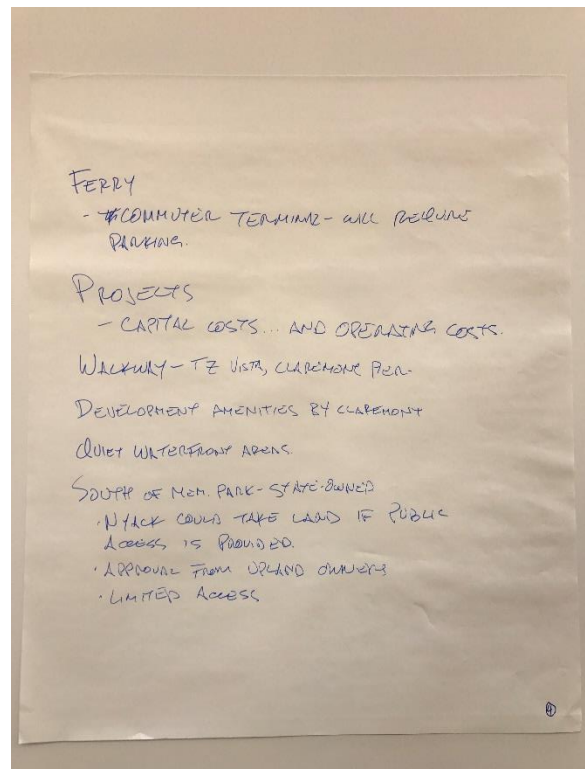 FERRY
- COMMUTER TERMINAL - WILL REQUIRE
PARKING.
PROJECTS
- CAPITAL COSTS... AND OPERATING COSTS.
WALKWAY - TZ VISTA, CLAREMONT
DEVELOPMENT AMENITIES BY CLAREMONT
QUIET WATERFRONT AREAS
SOUTH OF MEM. PARK - STATE-OWNED
· NYACK COULD TAKE LAND IF PUBLIC
ACCESS IS PROVIDED.
· APPROVAL FROM UPLAND OWNERS
· LIMITED ACCESS